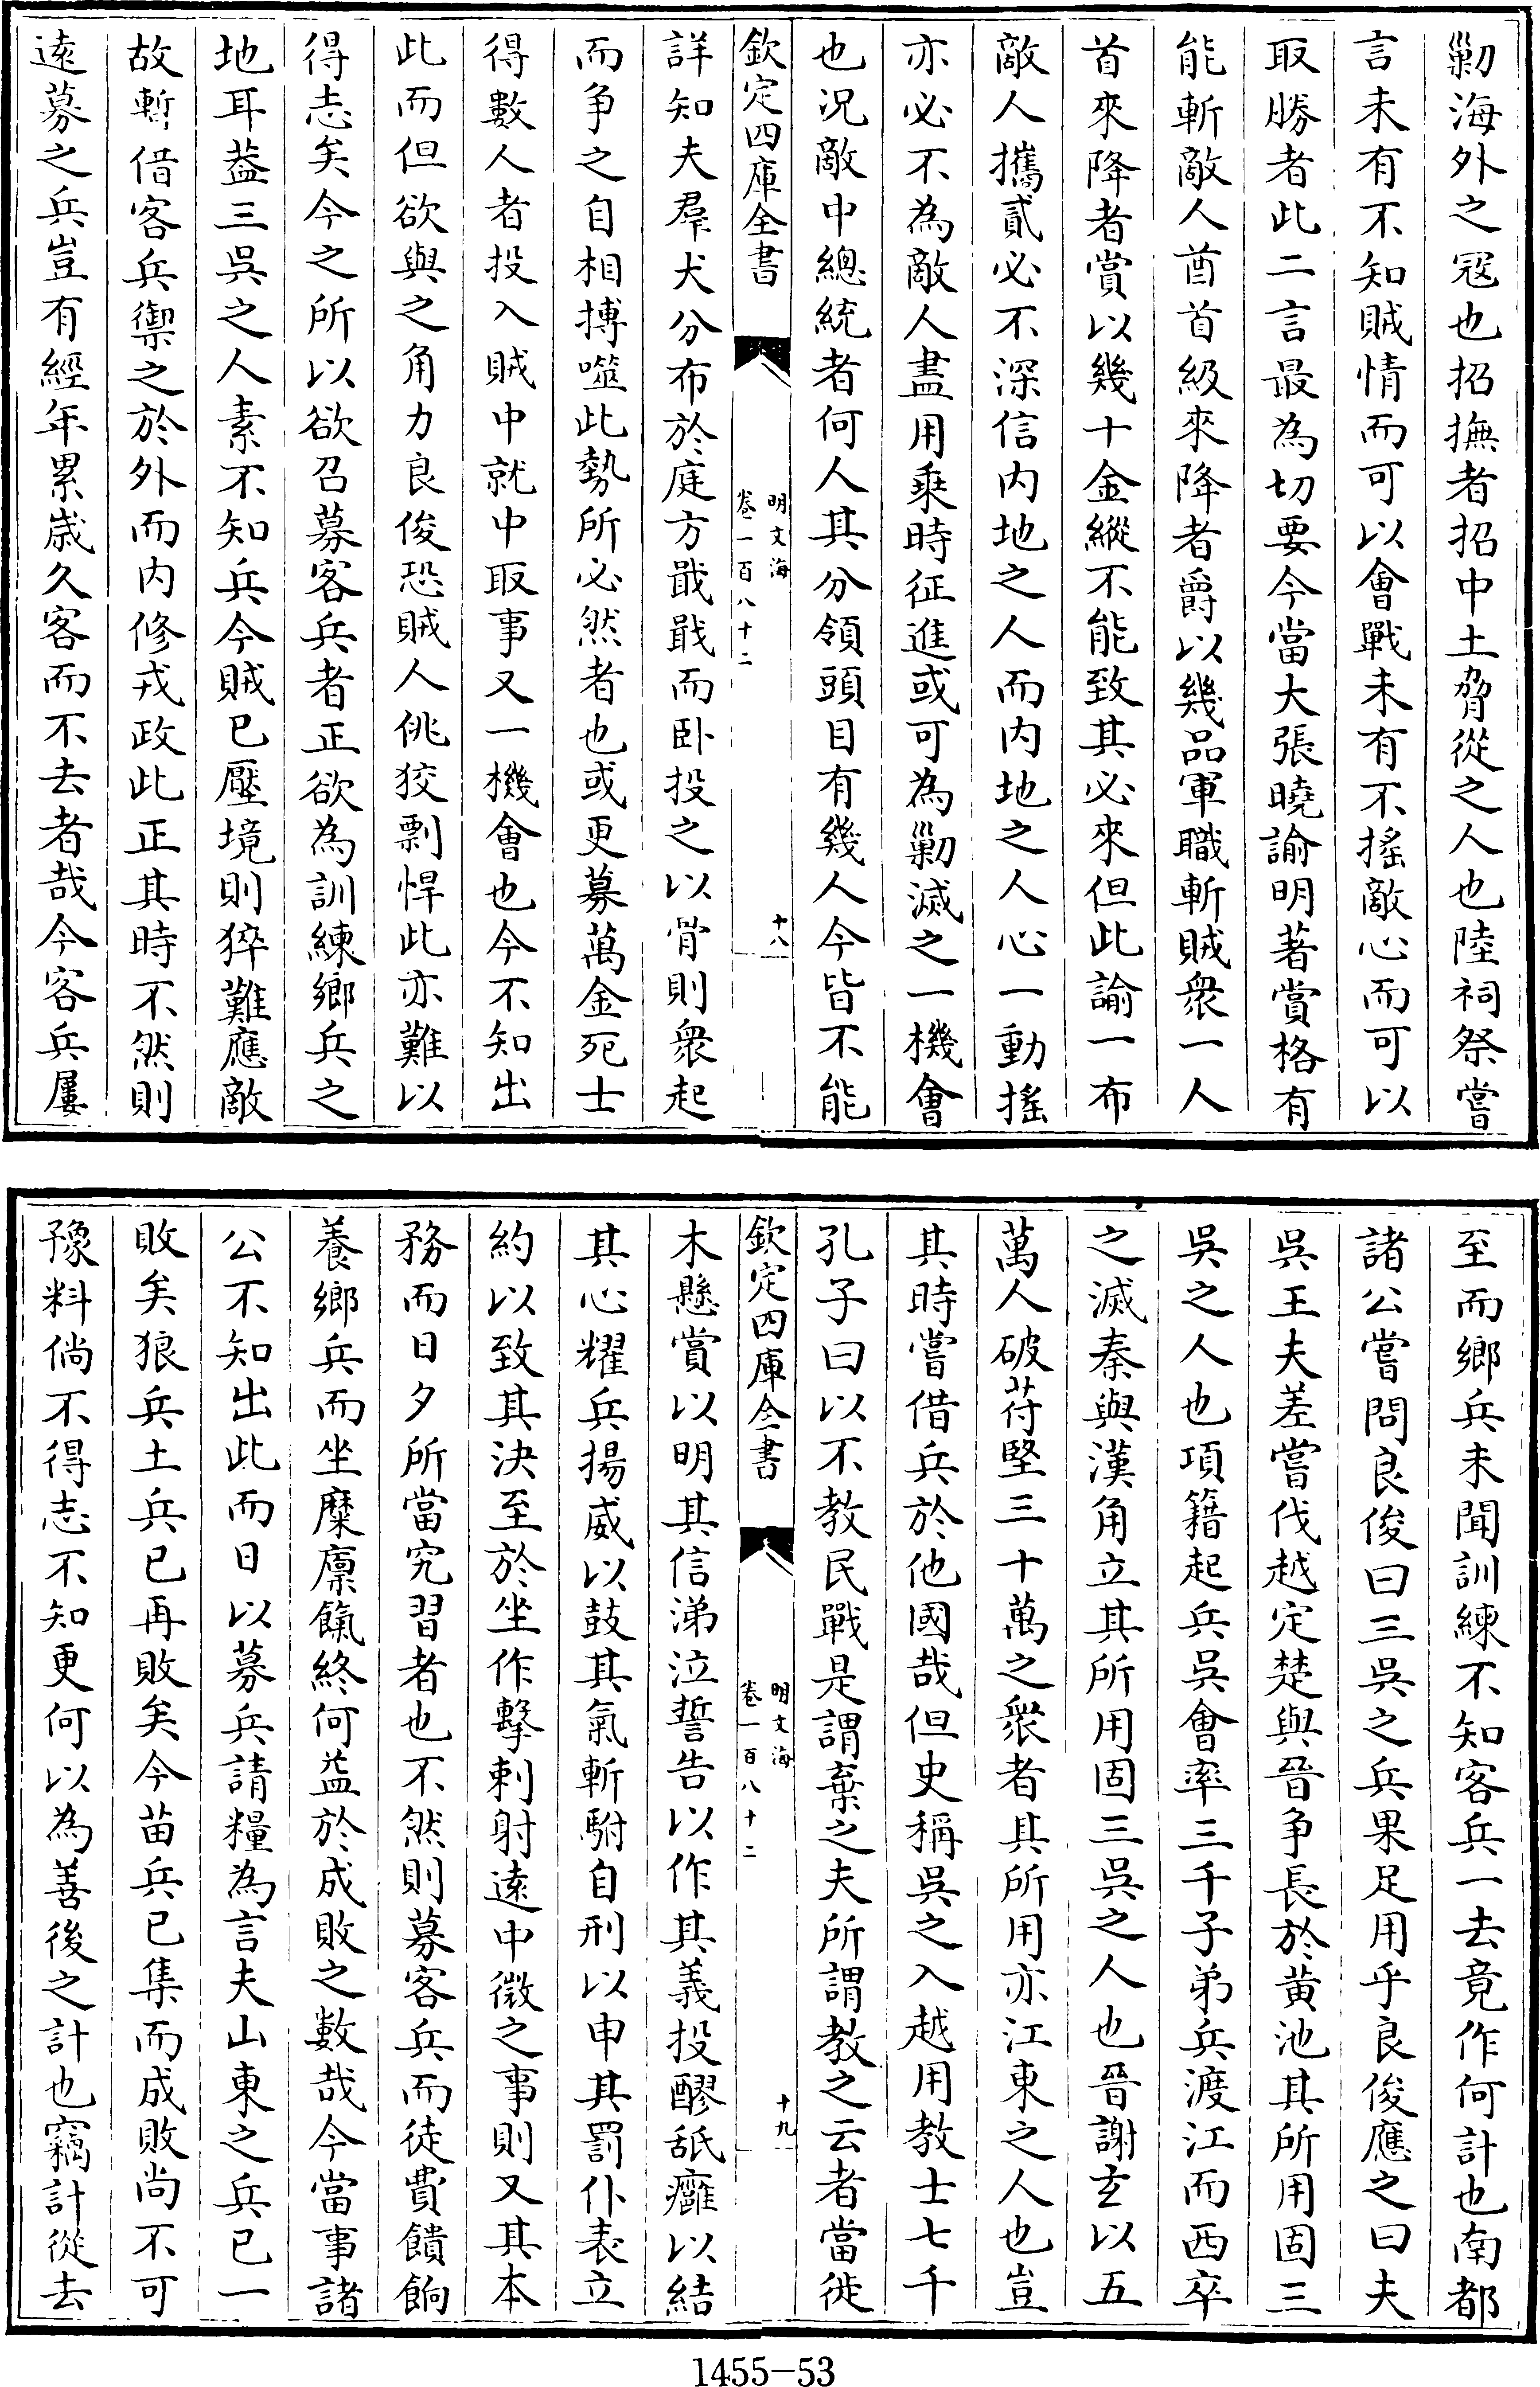 勦海外之冦也招撫者招中土脅從之人也陸祠祭嘗
言未有不知賊情而可以會戰未有不搖敵心而可以
取勝者此二言最為切要今當大張曉諭明著賞格有
能斬敵人酋首級來降者爵以幾品軍職斬賊衆一人
首來降者賞以幾十金縱不能致其必來但此諭一布
敵人攜貳必不深信内地之人而内地之人心一動搖
亦必不為敵人盡用乘時征進或可為勦滅之一機會
也况敵中總統者何人其分領頭目有幾人今皆不能
欽定四庫全書
明文海
卷一百八十二
十八
詳知夫羣犬分布於庭方戢戢而卧投之以骨則衆起
而争之自相搏噬此勢所必然者也或更募萬金死士
得數人者投入賊中就中取事又一機會也今不知出
此而但欲與之角力良俊恐賊人佻狡剽悍此亦難以
得志矣今之所以欲召募客兵者正欲為訓練鄉兵之
地耳葢三吳之人素不知兵今賊已壓境則猝難應敵
故暫借客兵禦之於外而内修戎政此正其時不然則
遠募之兵豈有經年累嵗久客而不去者哉今客兵屢
至而鄉兵未聞訓練不知客兵一去竟作何計也南都
諸公嘗問良俊曰三吳之兵果足用乎良俊應之曰夫
吳王夫差嘗伐越定楚與晉争長於黃池其所用固三
吳之人也項籍起兵吳會率三千子弟兵渡江而西卒
之滅秦與漢角立其所用固三吳之人也晉謝玄以五
萬人破苻堅三十萬之衆者其所用亦江東之人也豈
其時嘗借兵於他國哉但史稱吳之入越用教士七千
孔子曰以不教民戰是謂棄之夫所謂教之云者當徙
欽定四庫全書
明文海
卷一百八十二
十九
木懸賞以明其信涕泣誓告以作其義投醪舐癰以結
其心耀兵揚威以鼓其氣斬駙自刑以申其罰仆表立
約以致其決至於坐作擊刺射遠中微之事則又其本
務而日夕所當究習者也不然則募客兵而徒費饋餉
養鄉兵而坐糜廪餼終何益於成敗之數哉今當事諸
公不知出此而日以募兵請糧為言夫山東之兵已一
敗矣狼兵土兵已再敗矣今苗兵已集而成敗尚不可
豫料倘不得志不知更何以為善後之計也竊計從去
1455-53